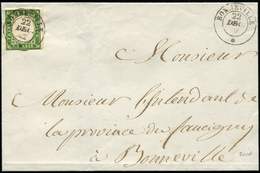 BONNEVILLE
22
DEC
Monsieur
Monsieur l'Intendant de
la province du faucigny
à Bonneville